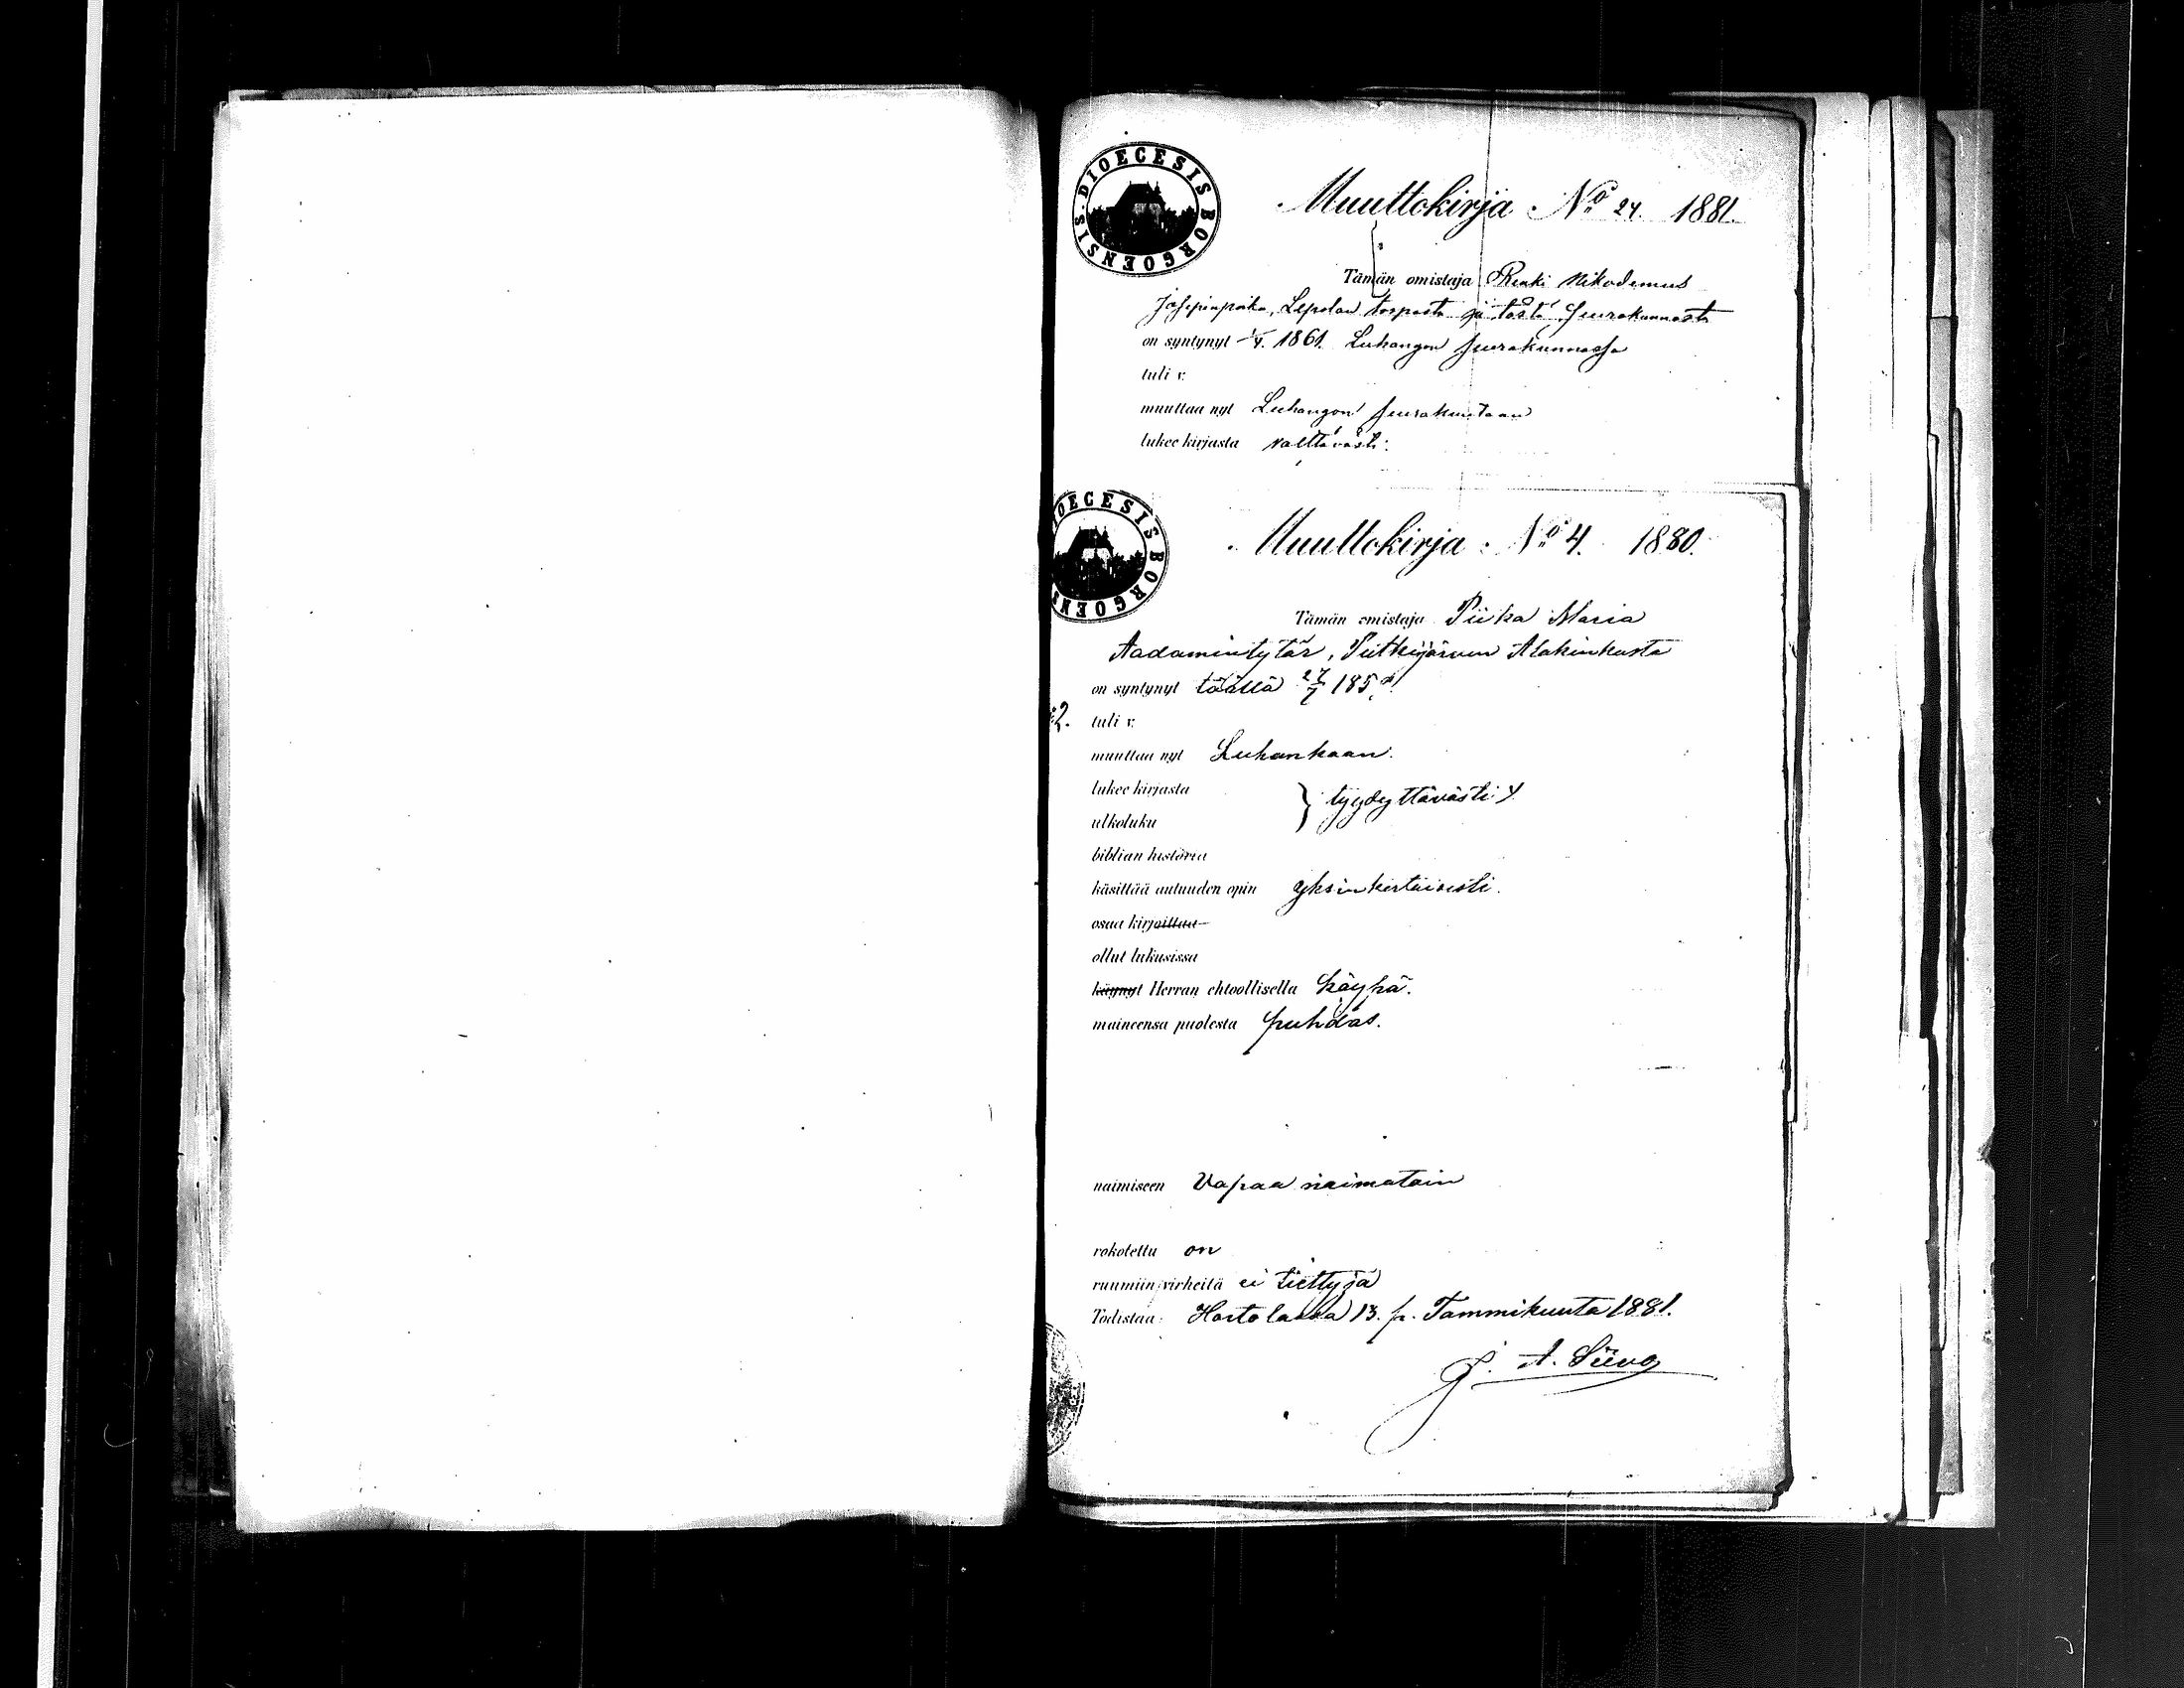 DIOECESIS BORGOENSIS
Muuttokirja No 24. 1881.
Tämän omistaja Renki Nikodemus
Josepinpoika, Lepolan torpasta ja tästä seurakunnasta
on syntynyt 1861. Luhangon seurakunnassa
tuli v.
muuttaa nyt Luhangon seurakuntaan
lukee kirjasta välttävästi.
OECESIS BORGOENS
Muuttokirja No 4. 1880.
Tämän omistaja Piika Maria
Aadamintytär, Putkijärven Alakinkusta
on syntynyt täällä 27/7 185
2. tuli v.
muuttaa nyt Luhankaan.
lukee kirjasta } tyydyttävästi
ulkoluku
biblian historia
käsittää autuuden opin yksinkertaisesti.
osaa kirjoittaa
ollut lukusissa
käynyt Herran ehtoollisella käypä.
maineensa puolesta puhdas.
naimiseen Vapaa naimatoin
rokotettu on
ruumiin virheitä ei tiettyjä
Todistaa: Hartolassa 13. p. Tammikuuta 1881.
J. A.